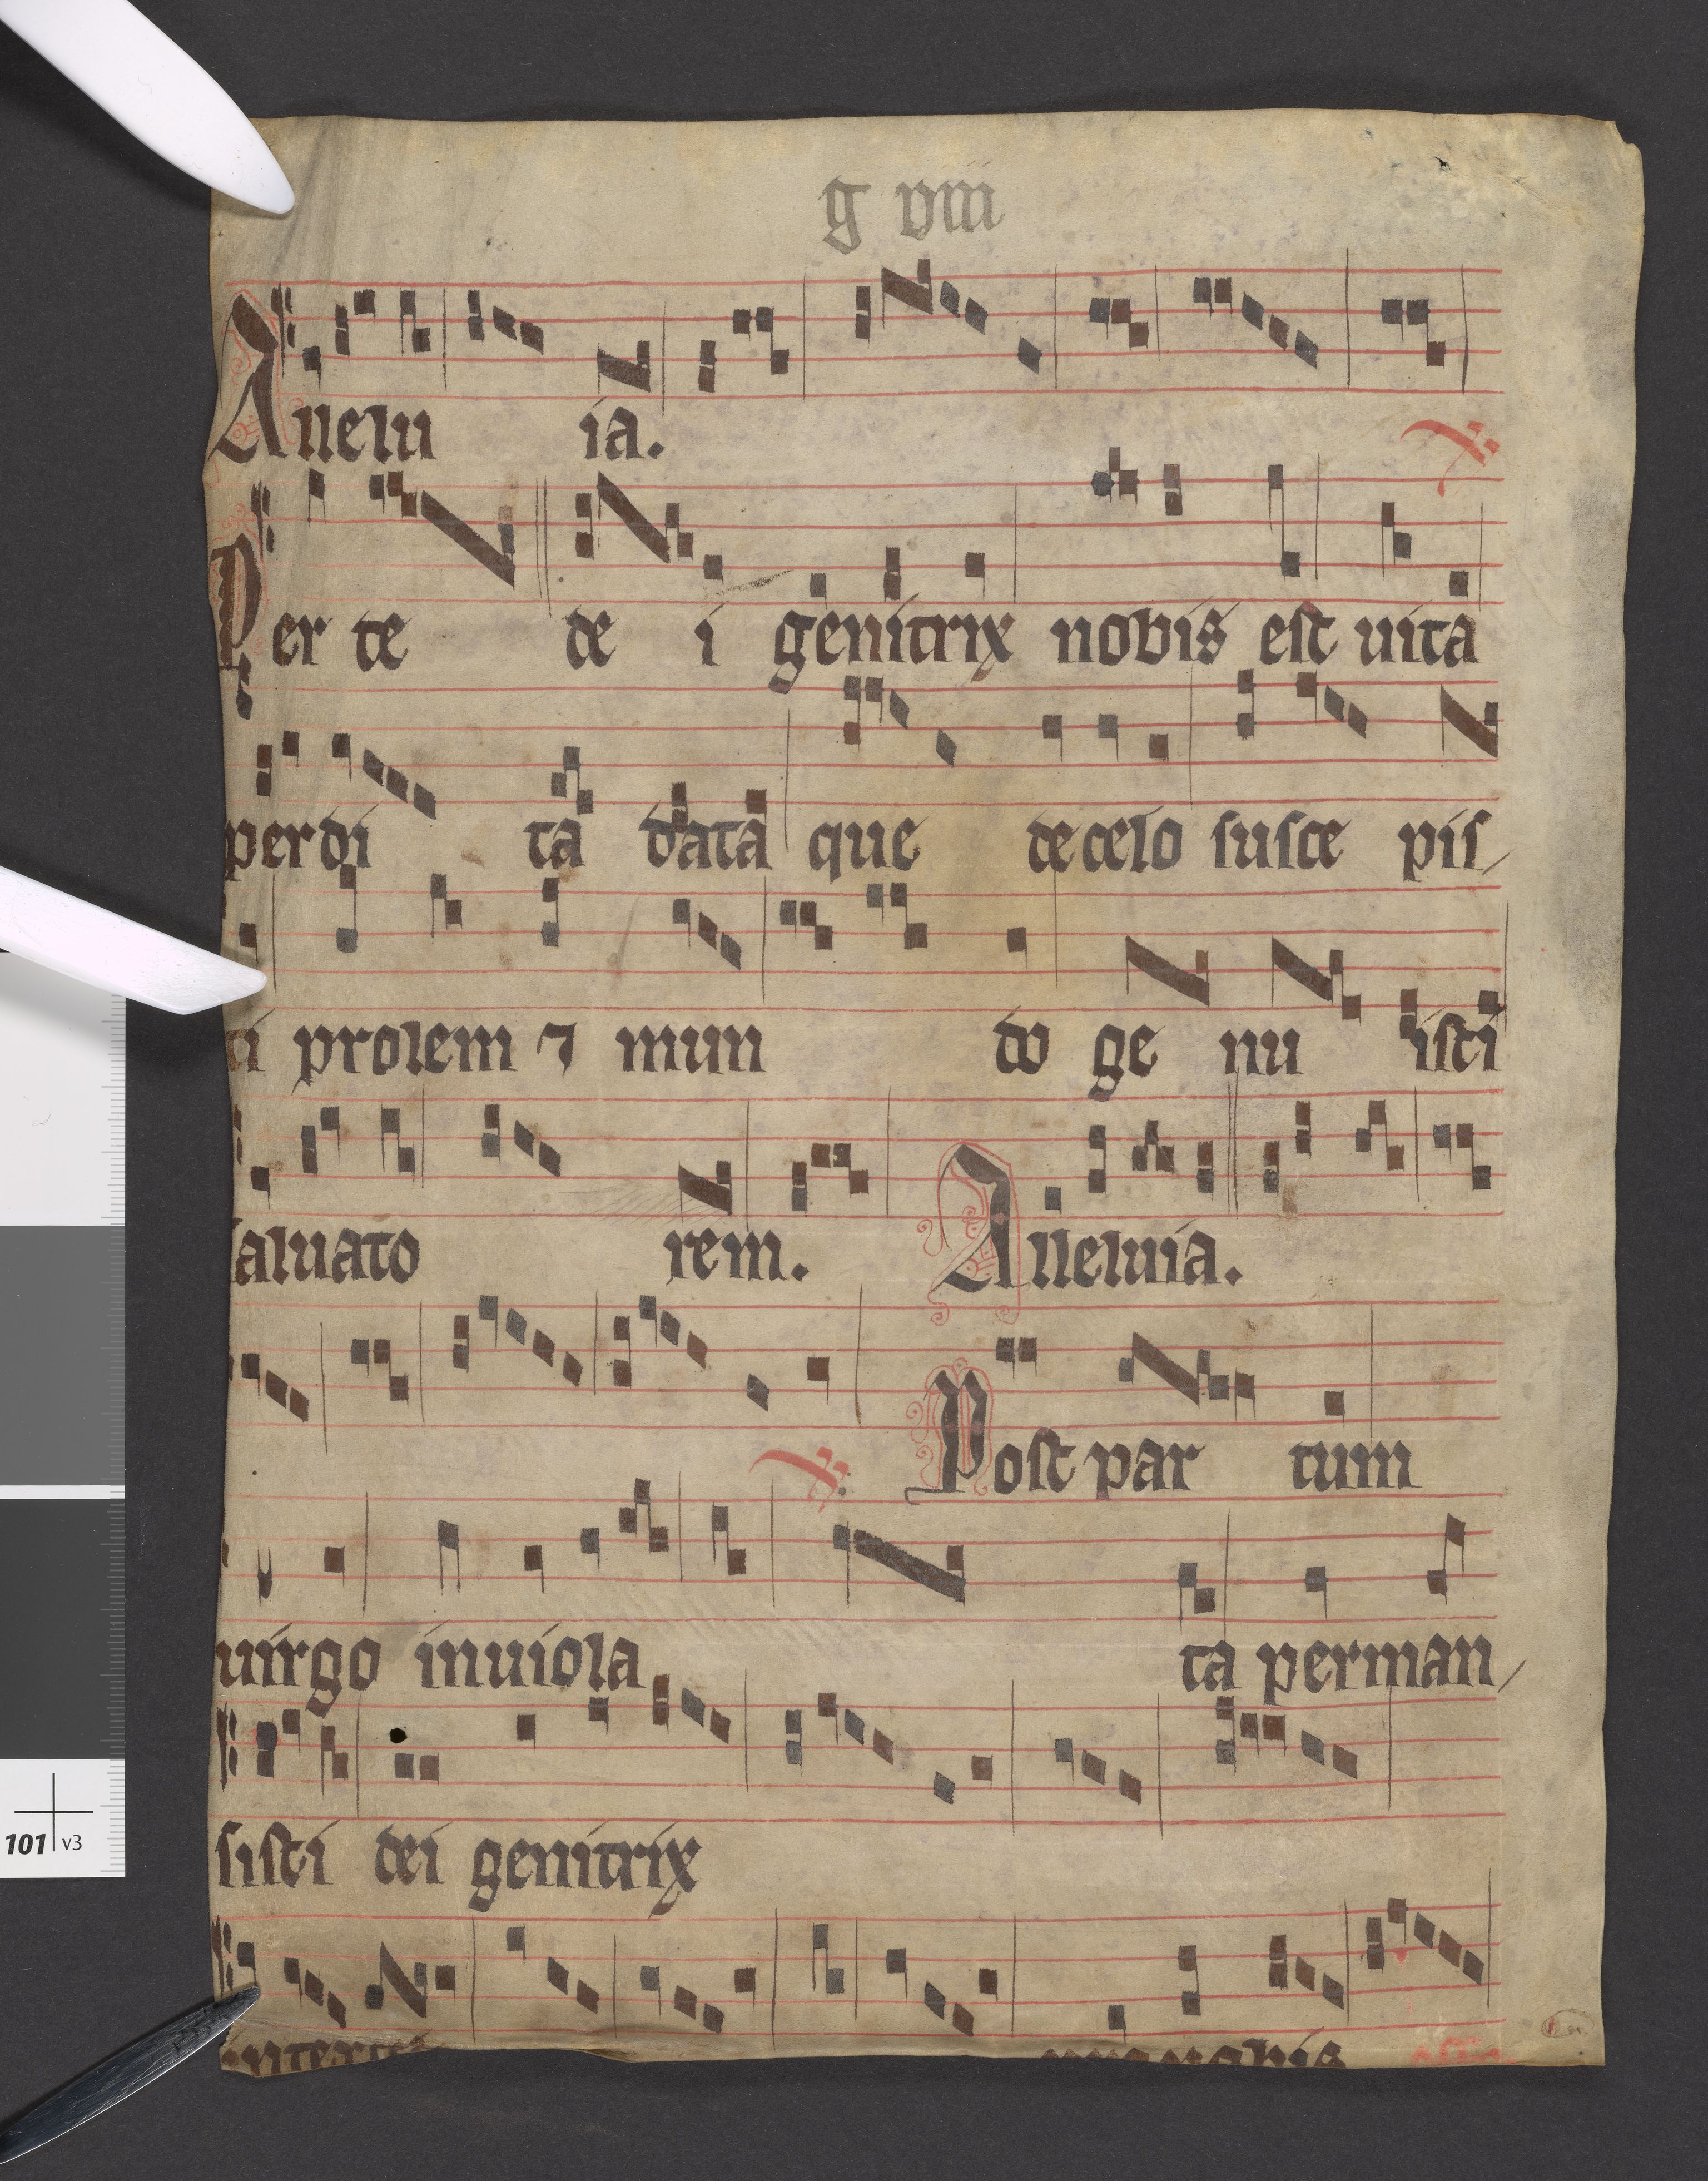 g viii
Alleluia.
Per te dei genitrix nobis est uita
perdita data que de celo suscepis/
ti prolem ⁊ mundo genuisti
saluatorem. Alleluia.
Post partum
uirgo inuiolata perman/
sisti dei genitrix
nobis
101 v3